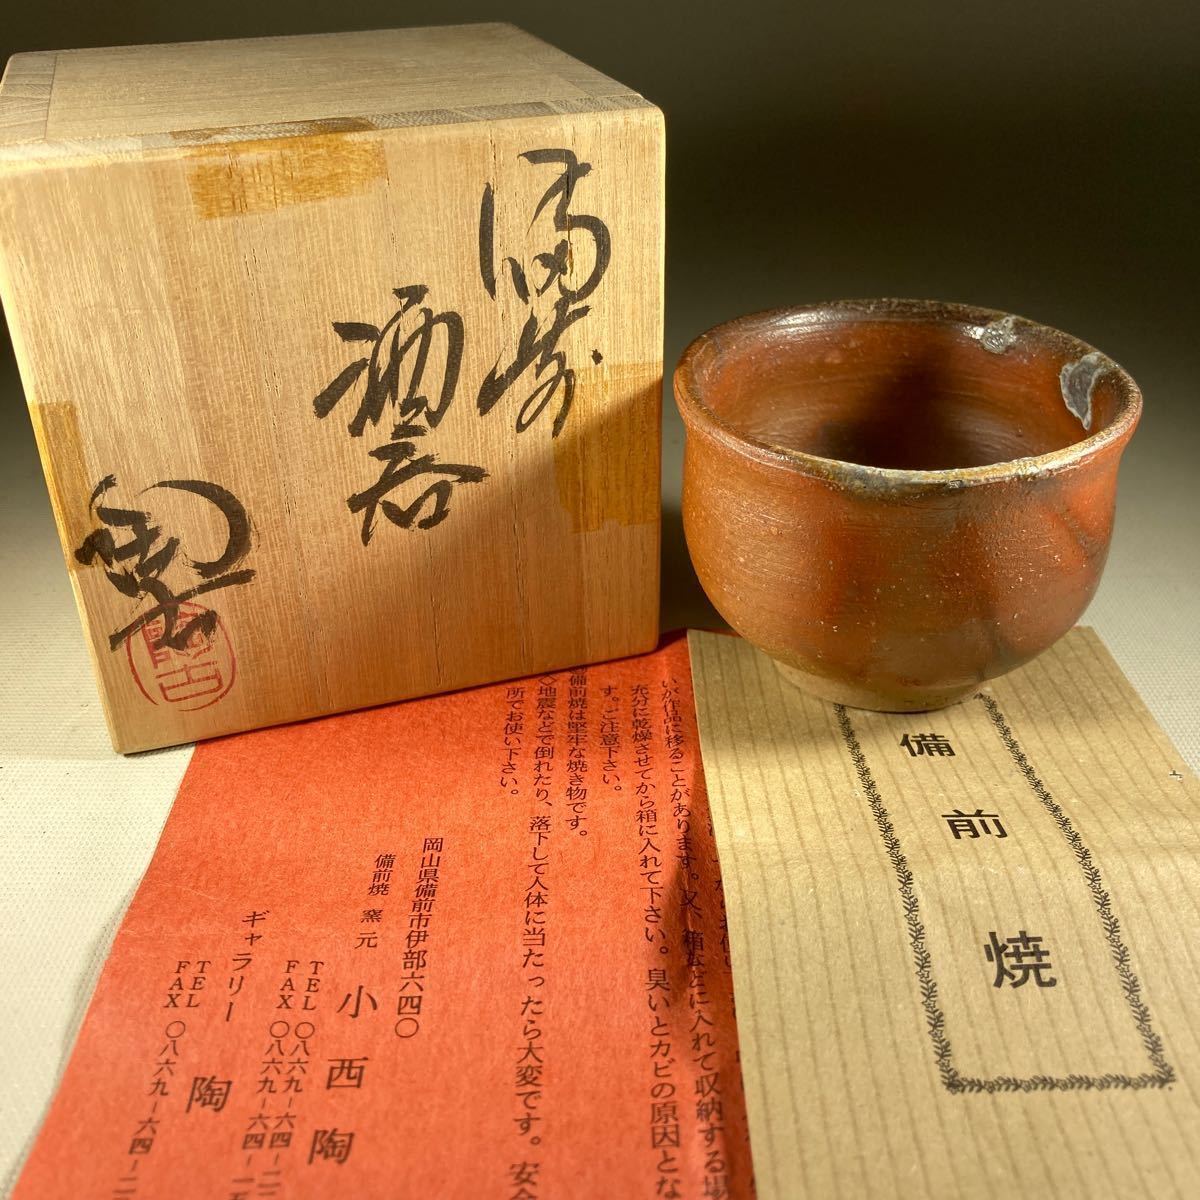 備前
酒呑
陶古
いが作品に移ることがあります。又、箱などに入れて収納する場
充分に乾燥させてから箱に入れて下さい。臭いとカビの原因とな
す。ご注意下さい。
備前焼は堅牢な焼き物です。
◇地震などで倒れたり、落下して人体に当たったら大変です。安全
所でお使い下さい。
岡山県備前市伊部六四〇
備前焼 窯元 小西陶
TEL 〇八六九-六四-二
FAX 〇八六九-六四-一五
ギャラリー 陶
TEL
FAX 〇八六九-六四-二
備前焼